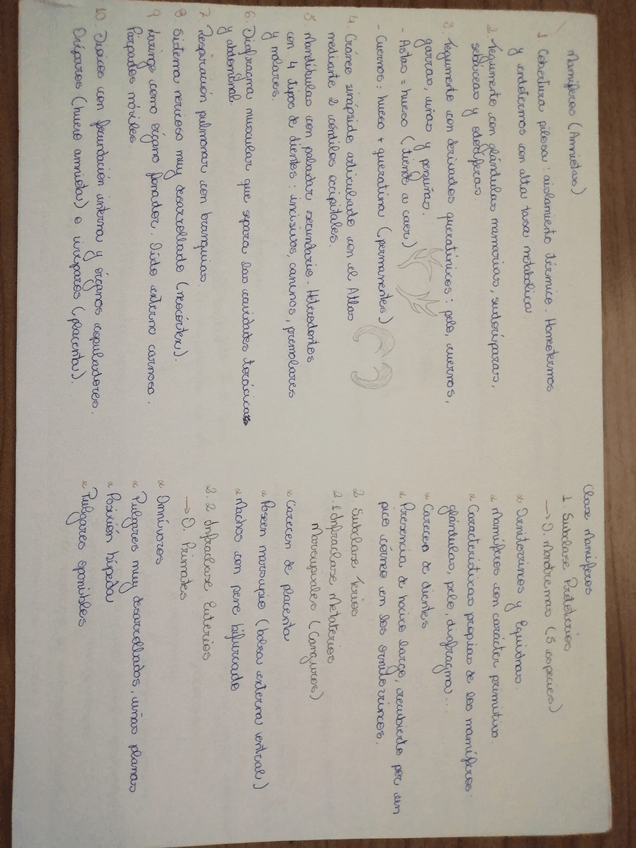 Mamíferos (Amniotas)
1 Cobertura pilosa: aislamiento térmico. Homeotermos
y endotermos con alta tasa metabólica.
2. Tegumento con glándulas mamarias, sudoríparas,
sebáceas y odoríferas
3. Tegumento con derivados queratínicos: pelo, cuernos,
garras, uñas y pezuñas.
- Astas: hueso (tiende a caer)
- Cuernos: hueso + queratina (permanentes)
4 Cráneo sinápsido articulado con el Atlas
mediante 2 cóndilos occipitales.
5 Mandíbulas con paladar secundario. Heterodontos
con 4 tipos de dientes: incisivos, caninos, premolares
y molares.
6 Diafragma muscular que separa las cavidades torácicas
y abdominal
7 Respiración pulmonar con branquias
8 Sistema nervioso muy desarrollado (neocórtex).
9 Laringe como órgano fonador. Oído externo carnoso.
Párpados móviles
10 Dioicos con fecundación interna y órganos copuladores.
Ovíparos (huevo amniota) o vivíparos (placenta).
Clase Mamíferos
1 Subclase Prototerios
→ O. Monotremas (5 especies)
* Ornitorrinos y Equidnas
* Mamíferos con carácter primitivo
* Características propias de los mamíferos:
glándulas, pelo, diafragma...
* Carecen de dientes
* Presencia de hocico largo, recubierto por un
pico córneo en los ornitorrincos.
2 Subclase Terios
2.1 Infraclase Metaterios
Marsupiales (Canguros)
* Carecen de placenta
* Poseen marsupio (bolsa externa ventral)
* Machos con pene bifurcado
2.2 Infraclase Euterios
→ O. Primates
* Omnívoros
* Pulgares muy desarrollados, uñas planas
* Posición bípeda
* Pulgares oponibles